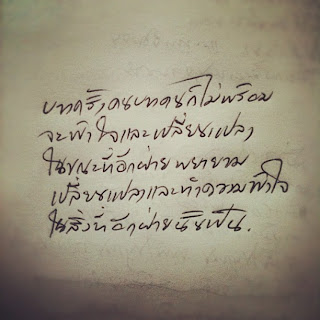 บางครั้งคนบางคนก็ไม่พร้อม
จะเข้าใจและเปลี่ยนแปลง
ในขณะที่อีกฝ่าย พยายาม
เปลี่ยนแปลงและทำความเข้าใจ
ในสิ่งที่อีกฝ่ายนั้นเป็น.